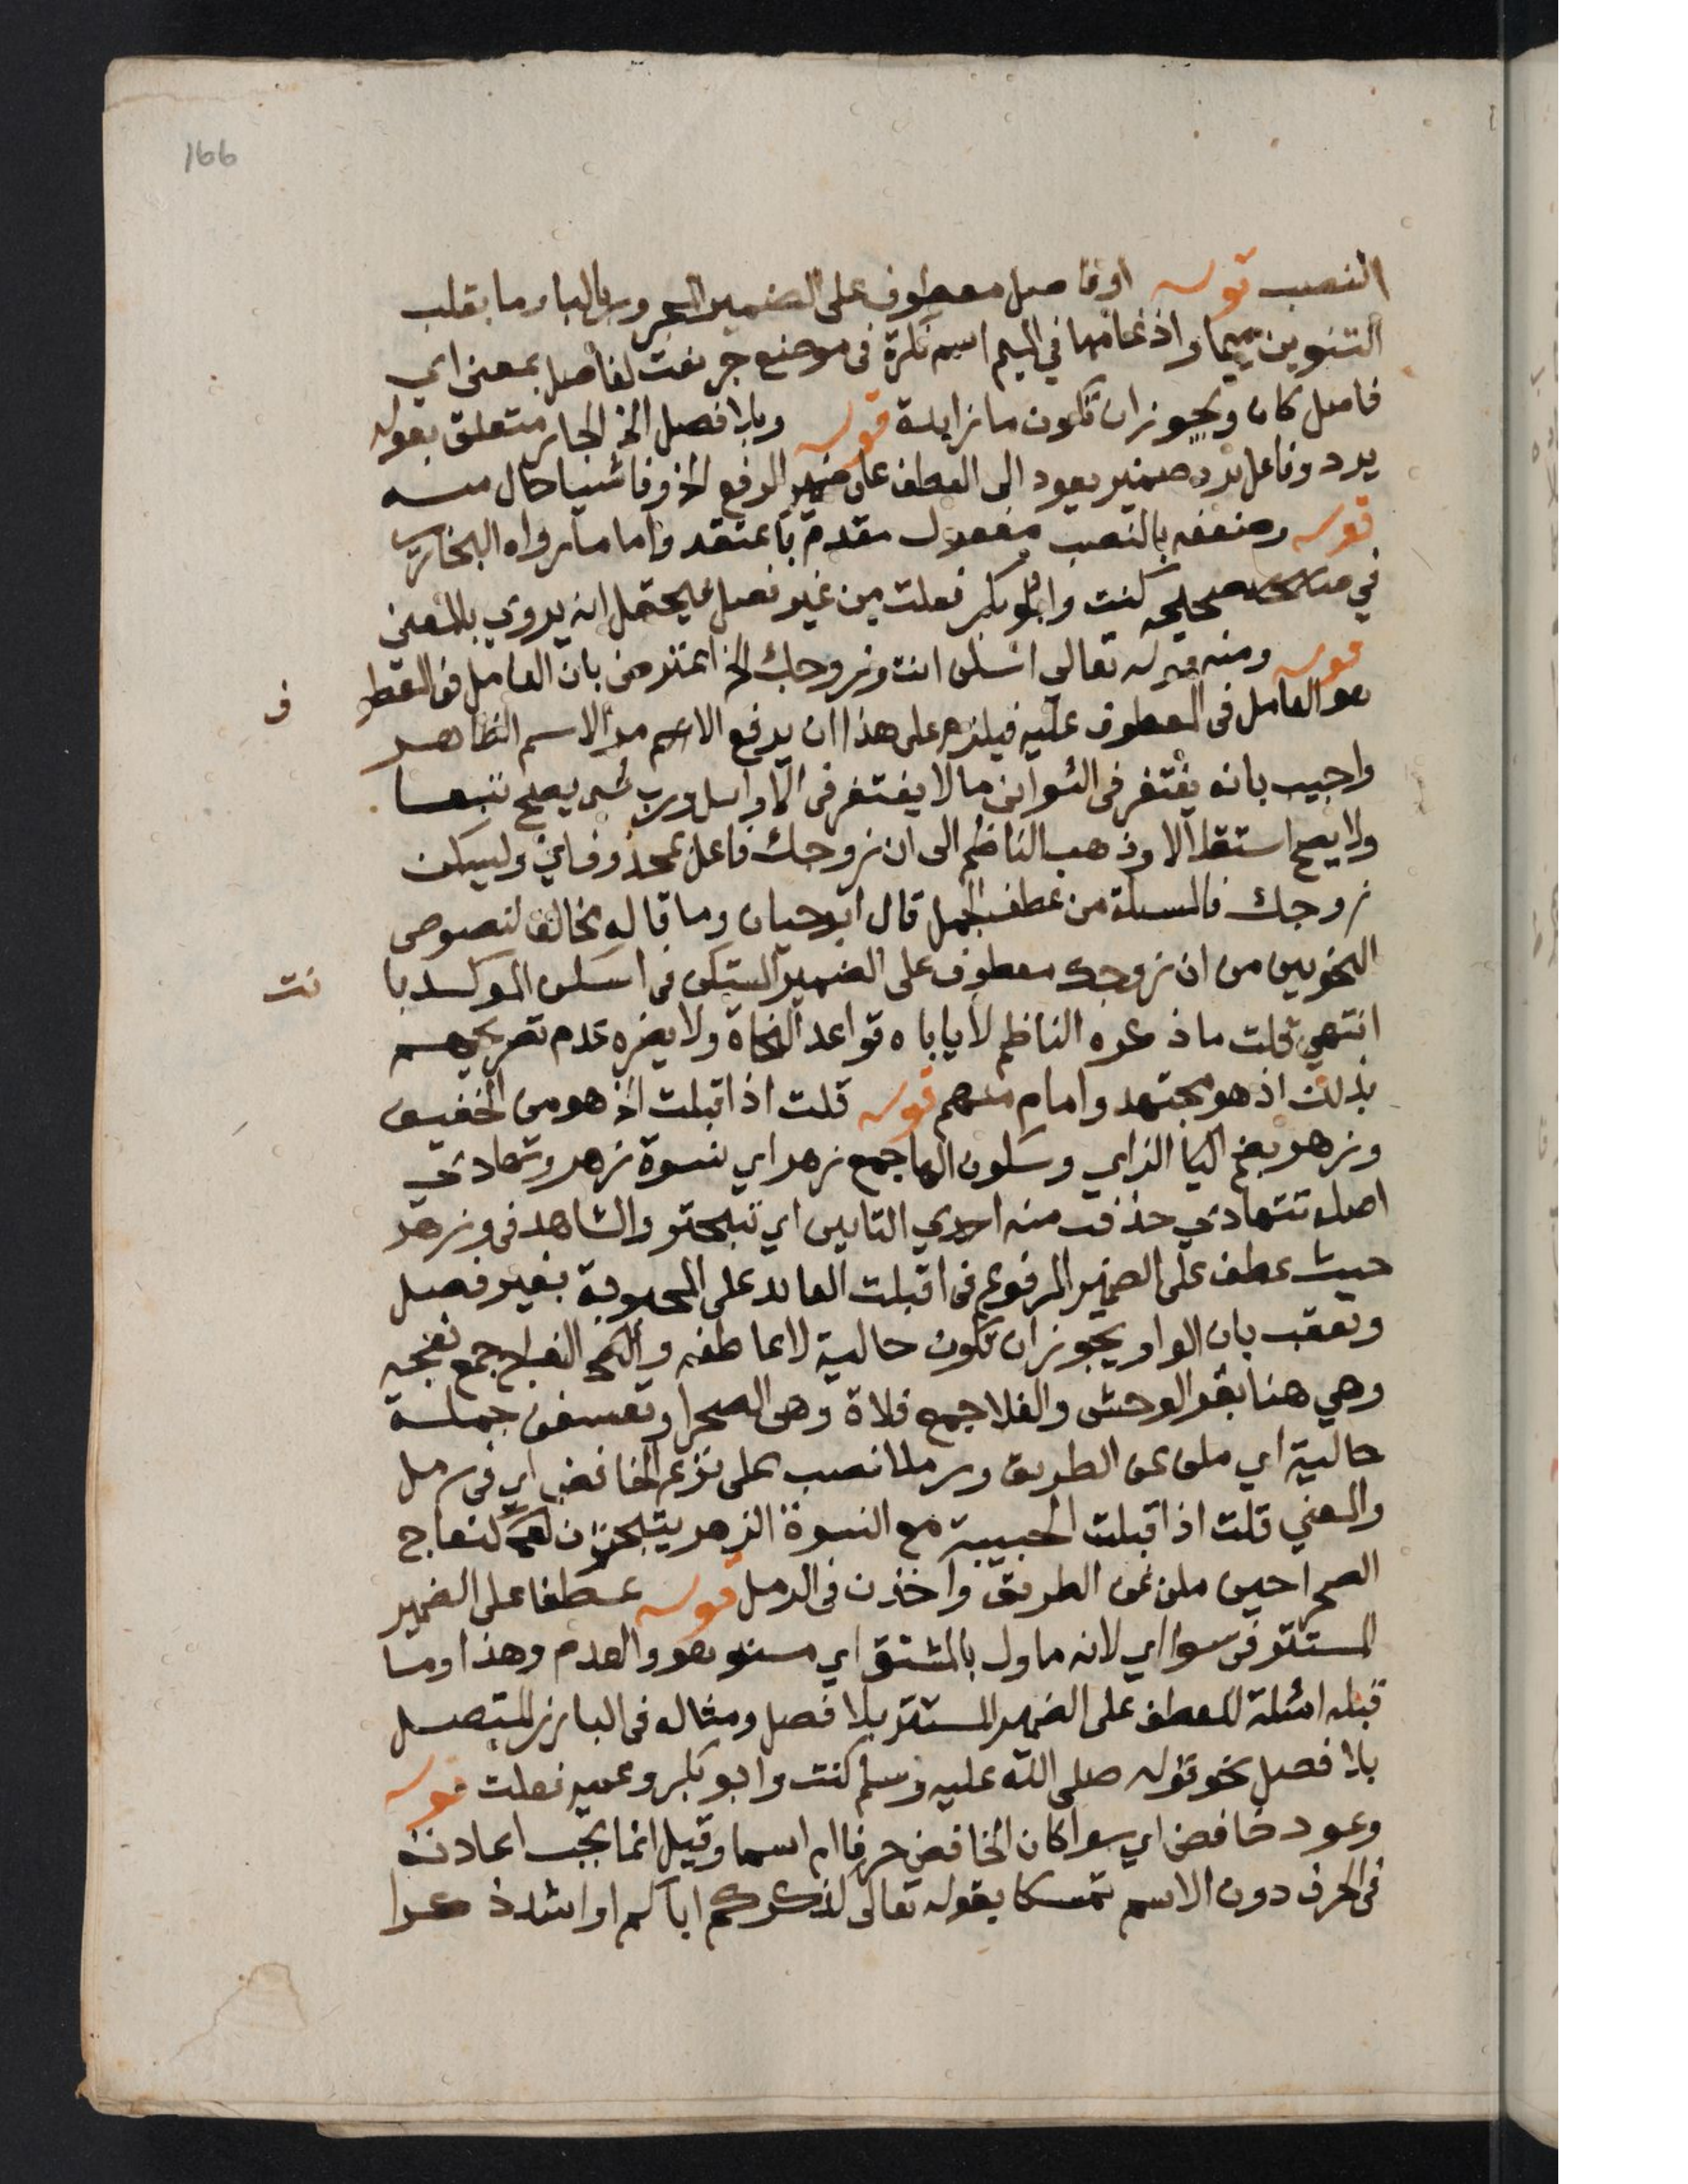 166
النصب قوله او فاصل معطوف على الضمير المجرور بالبا وما بقلب
التنوين ميما وادغامها في الميم اسم نكرة في موضع جر نعت لفاصل بمعنى اي
فاصل كان ويجوز ان تكون ما زايدة قوله وبلا فصل الخ الجار متعلق بقوله
يرد وفاعل يرد ضمير يعود الى العطف على ضمير الرفع الخ وفاشيا حال منه
قوله وضعفه بالنصب مفعول مقدم باعتقد واما ما رواه البخاري
في صحيحه كنت وابو بكر فعلت من غير فصل فيحتمل انه يروي بالمعنى
قوله ومنه قوله تعالى اسكن انت وزوجك الخ اعترض بان العامل في المعطو
ف
هو العامل في المعطوف عليه فيلزم على هذا ان يرفع الامر الاسم الظاهر
واجيب بانه يغتفر في الثواني ما لا يغتفر في الاوايل ورب شي يصح تبعا
ولا يصح استقلالا وذهب الناظم الى ان زوجك فاعل بمحذوف اي وليسكن
زوجك فالمسلة من عطف الجمل قال ابو حيان وما قاله مخالف لنصوص
النحويين من ان زوجك معطوف على الضمير المستكن في اسكن الموكد با
نت
انتهى قلت ما ذكره الناظم لا ياباه قواعد النحاة ولا يضره عدم تصريحهم
بذلك اذ هو مجتهد وامام منهم قوله قلت اذ اقبلت الخ هو من الخفيف
وزهر بضم الزاي وسكون الها جمع زهرا اي نسوة زهر وتهادي
اصله تتهادي حذفت منه احدي التايين اي تتبختر والشاهد في وزهر
حيث عطف على الضمير المرفوع في اقبلت العايد على المحبوبة بغير فصل
وتعقب بان الواو يجوز ان تكون حالية لا عاطفه والنعاج جمع نعجه
وهي هنا بقر الوحش والفلا جمع فلاة وهي الصحرا وتعسفن جملة
حالية اي ملن عن الطريق ورملا نصب على نزع الخافض اي في رمل
والمعني قلت اذ اقبلت الحبيبة مع النسوة الزهر يتبخترن كنعاج
الصحرا حين ملن عن الطريق واخذن في الرمل قوله عطفا على الضمير
المستتر في سوا اي لانه ماول بالمشتق اي مستو هو والعدم وهذا وما
قبله امثلة للعطف على الضمير المستتر بلا فصل ومثاله في البارز المتصل
بلا فصل نحو قوله صلى الله عليه وسلم كنت وابو بكر وعمر فعلت قوله
وعود خافض اي سوا كان الخافض حرفا ام اسما وقيل انما يجب اعادته
في الحرف دون الاسم تمسكا بقوله تعالى كذكركم اباكم او اشد ذكرا